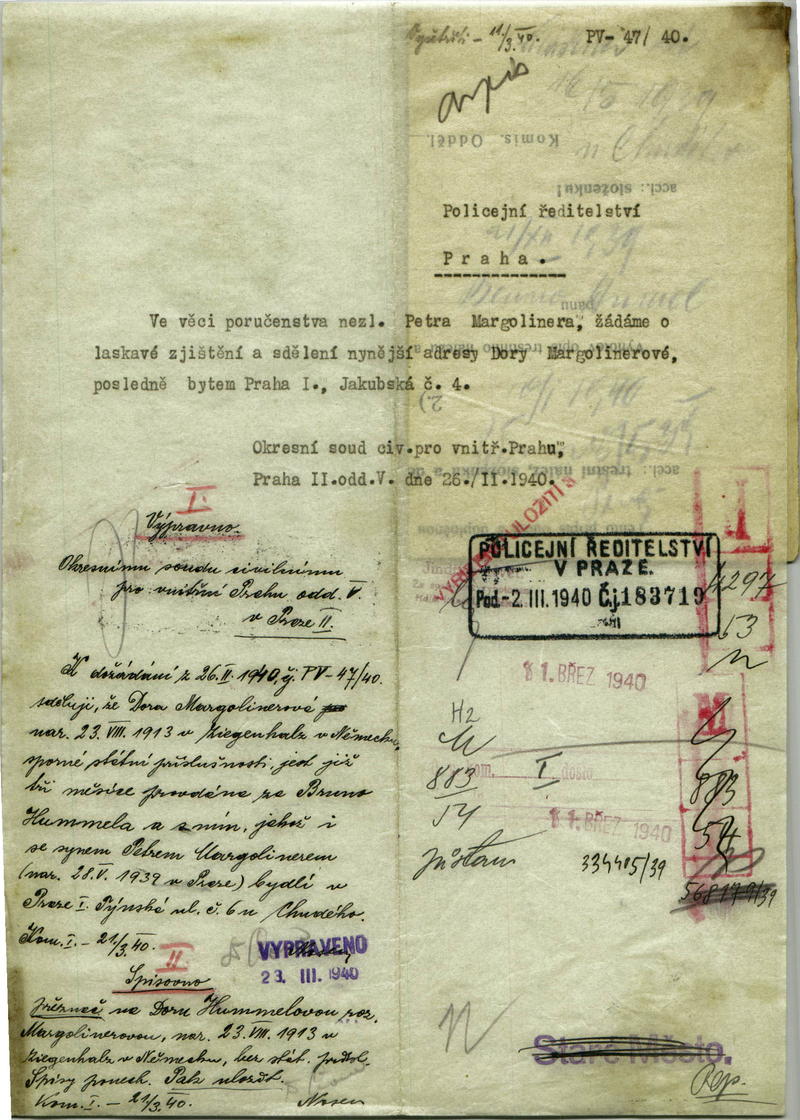 11/3.40.
PV- 47/ 40.
opis
Komis. Odděl.
accl.: složenku!
Policejní ředitelství
Praha.
pánu
Ve věci poručenstva nezl. Petra Margolinera, žádáme o
laskavé zjištění a sdělení nynější adresy Dory Margolinerové,
posledně bytem Praha I., Jakubská č. 4.
2.)
Okresní soud civ.pro vnitř.Prahu,
Praha II.odd.V. dne 26./II.1940.
I.
Výpravno.
Okresnímu soudu civilnímu
pro vnitřní Prahu odd. V.
v Praze II.
POLICEJNÍ ŘEDITELSTVÍ
V PRAZE.
Pod.-2. III. 1940 Č.j. 183719
I
4297
53
K dožádání z 26.II. 1940, čj. PV-47/40.
sděluji, že Dora Margolinerová
nar. 23. VIII. 1913 v Ziegenhalz v Německu,
sporné státní příslušnosti, jest již
tři měsíce provdána za Bruno
Hummela a s ním, jehož i
se synem Petrem Margolinerem
(nar. 28.V. 1939 v Praze) bydlí v
Praze I. Týnská ul. č. 6 u Chudého.
Kom. I. - 21/3.40.
11. BŘEZ 1940
H2
883
54
Kom. I došlo
11. BŘEZ 1940
883
54
334405/39
568179/39
VYPRAVENO
23. III. 1940
II
Spisovno
přeznač na Doru Hummelovou roz.
Margolinerovou, nar. 23. VIII. 1913 v
Ziegenhalz v Německu, bez stát. přísl.
Spisy ponech. Pak uložit.
Kom. I. - 21/3.40.
Staré Město.
Rep.